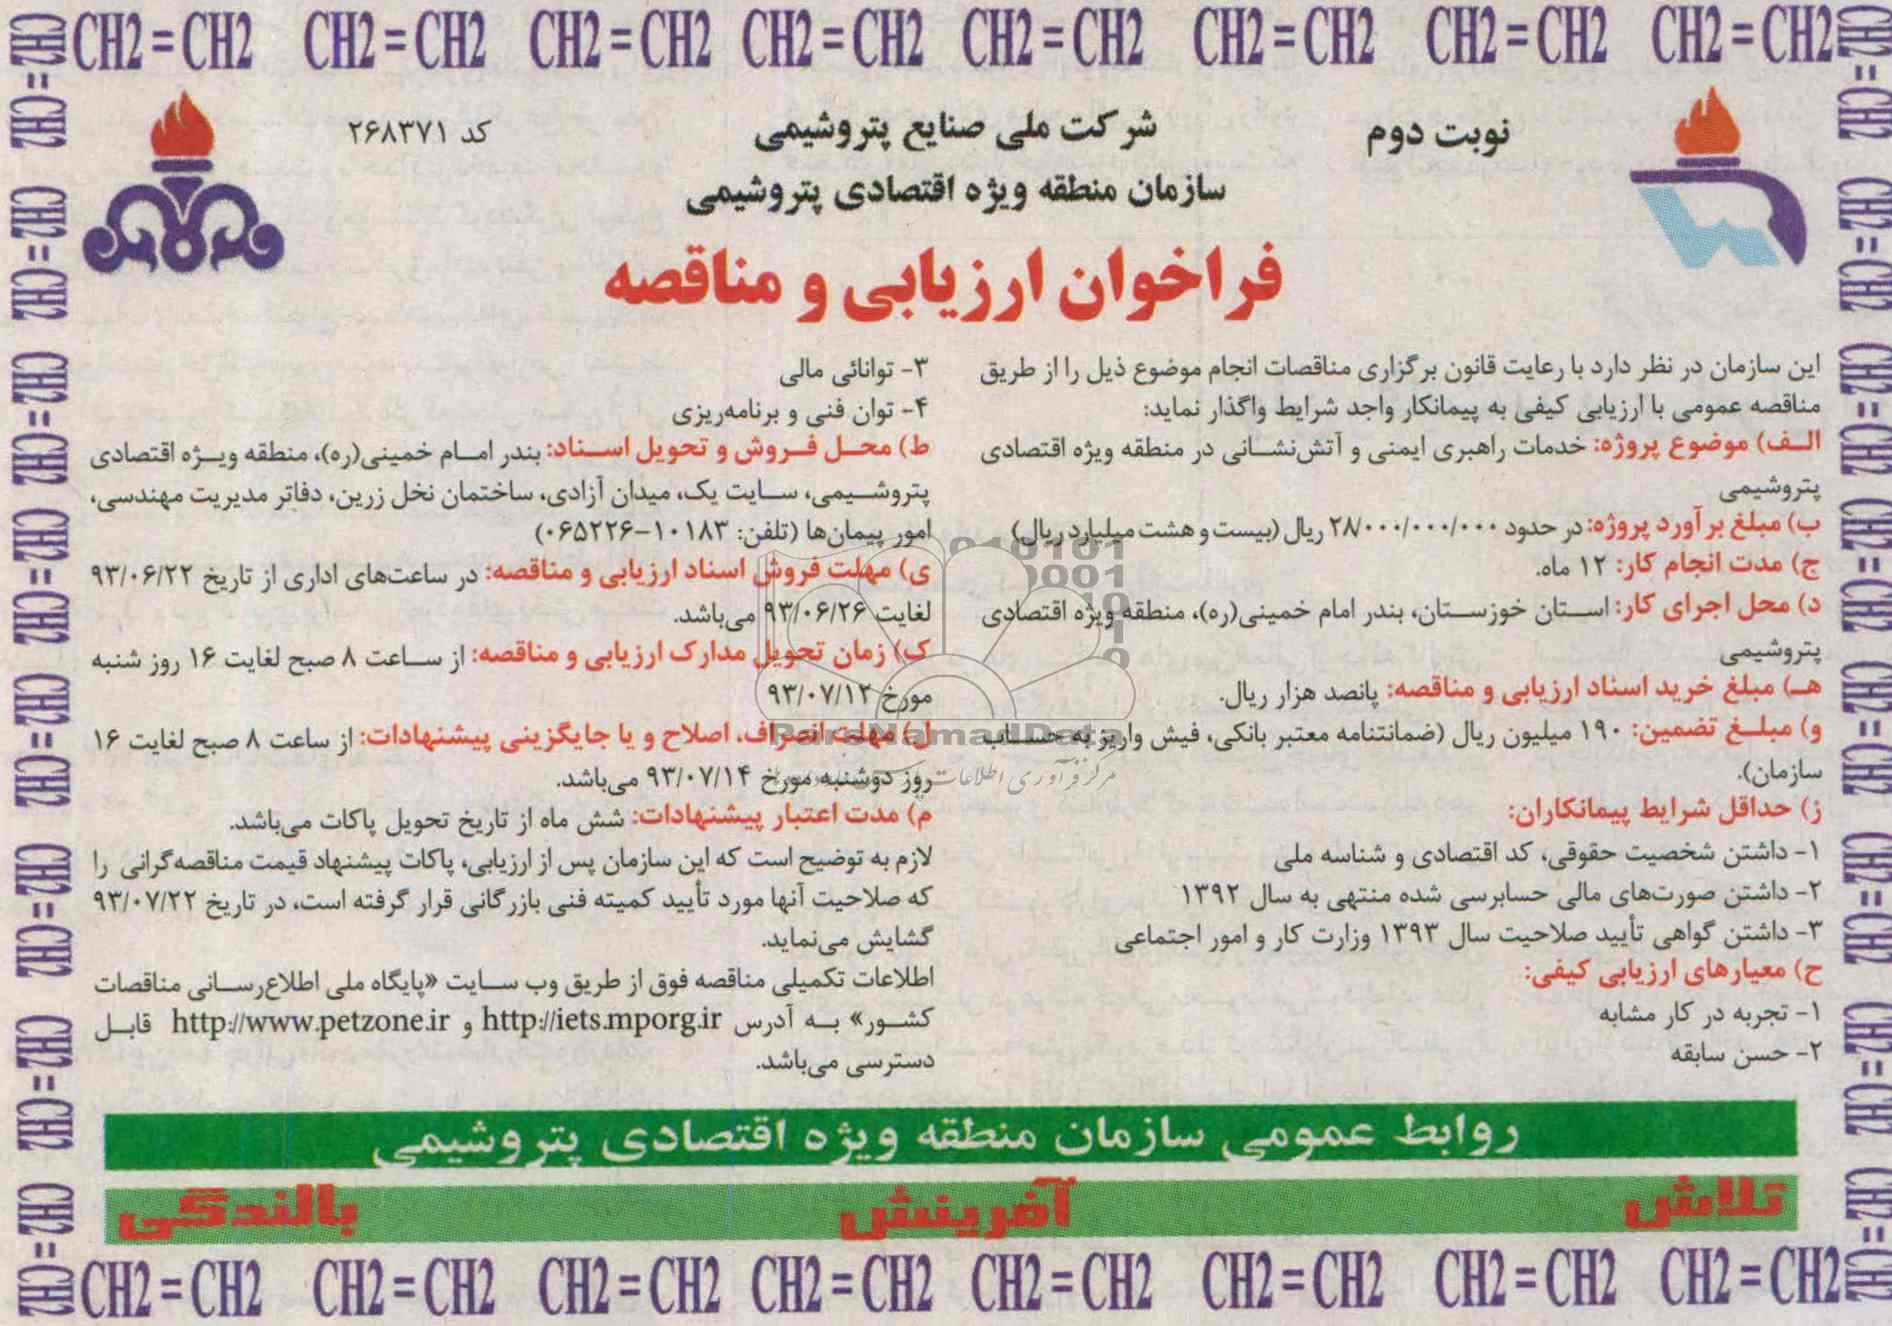 CH2=CH2 CH2=CH2 CH2=CH2 CH2=CH2 CH2=CH2 CH2=CH2 CH2=CH2 CH2=CH2
نوبت دوم
شرکت ملی صنایع پتروشیمی
کد ۲۶۸۳۷۱
سازمان منطقه ویژه اقتصادی پتروشیمی
فراخوان ارزیابی و مناقصه
این سازمان در نظر دارد با رعایت قانون برگزاری مناقصات انجام موضوع ذیل را از طریق
مناقصه عمومی با ارزیابی کیفی به پیمانکار واجد شرایط واگذار نماید:
الـف) موضوع پروژه: خدمات راهبری ایمنی و آتش‌نشـانی در منطقه ویژه اقتصادی
پتروشیمی
ب) مبلغ برآورد پروژه: در حدود ۲۸/۰۰۰/۰۰۰/۰۰۰ ریال (بیست و هشت میلیارد ریال)
ج) مدت انجام کار: ۱۲ ماه.
د) محل اجرای کار: اسـتان خوزسـتان، بندر امام خمینی(ره)، منطقه ویژه اقتصادی
پتروشیمی
هـ) مبلغ خرید اسناد ارزیابی و مناقصه: پانصد هزار ریال.
و) مبلـغ تضمین: ۱۹۰ میلیون ریال (ضمانتنامه معتبر بانکی، فیش واریز به حسـاب
سازمان).
ز) حداقل شرایط پیمانکاران:
۱- داشتن شخصیت حقوقی، کد اقتصادی و شناسه ملی
۲- داشتن صورت‌های مالی حسابرسی شده منتهی به سال ۱۳۹۲
۳- داشتن گواهی تأیید صلاحیت سال ۱۳۹۳ وزارت کار و امور اجتماعی
ح) معیارهای ارزیابی کیفی:
۱- تجربه در کار مشابه
۲- حسن سابقه
۳- توانائی مالی
۴- توان فنی و برنامه‌ریزی
ط) محـل فـروش و تحویل اسـناد: بندر امـام خمینی(ره)، منطقه ویـژه اقتصادی
پتروشـیمی، سـایت یک، میدان آزادی، ساختمان نخل زرین، دفاتر مدیریت مهندسی،
امور پیمان‌ها (تلفن: ۱۰۱۸۳-۰۶۵۲۲۶)
ی) مهلت فروش اسناد ارزیابی و مناقصه: در ساعت‌های اداری از تاریخ ۹۳/۰۶/۲۲
لغایت ۹۳/۰۶/۲۶ می‌باشد.
ک) زمان تحویل مدارک ارزیابی و مناقصه: از سـاعت ۸ صبح لغایت ۱۶ روز شنبه
مورخ ۹۳/۰۷/۱۲
ل) مهلت انصراف، اصلاح و یا جایگزینی پیشنهادات: از ساعت ۸ صبح لغایت ۱۶
روز دوشنبه مورخ ۹۳/۰۷/۱۴ می‌باشد.
م) مدت اعتبار پیشنهادات: شش ماه از تاریخ تحویل پاکات می‌باشد.
لازم به توضیح است که این سازمان پس از ارزیابی، پاکات پیشنهاد قیمت مناقصه‌گرانی را
که صلاحیت آنها مورد تأیید کمیته فنی بازرگانی قرار گرفته است، در تاریخ ۹۳/۰۷/۲۲
گشایش می‌نماید.
اطلاعات تکمیلی مناقصه فوق از طریق وب سـایت «پایگاه ملی اطلاع‌رسـانی مناقصات
کشـور» بـه آدرس http://iets.mporg.ir و http://www.petzone.ir قابـل
دسترسی می‌باشد.
ParsNamadData
مرکز فرآوری اطلاعات
روابط عمومی سازمان منطقه ویژه اقتصادی پتروشیمی
تلاش آفرینش بالندگی
CH2=CH2 CH2=CH2 CH2=CH2 CH2=CH2 CH2=CH2 CH2=CH2 CH2=CH2 CH2=CH2